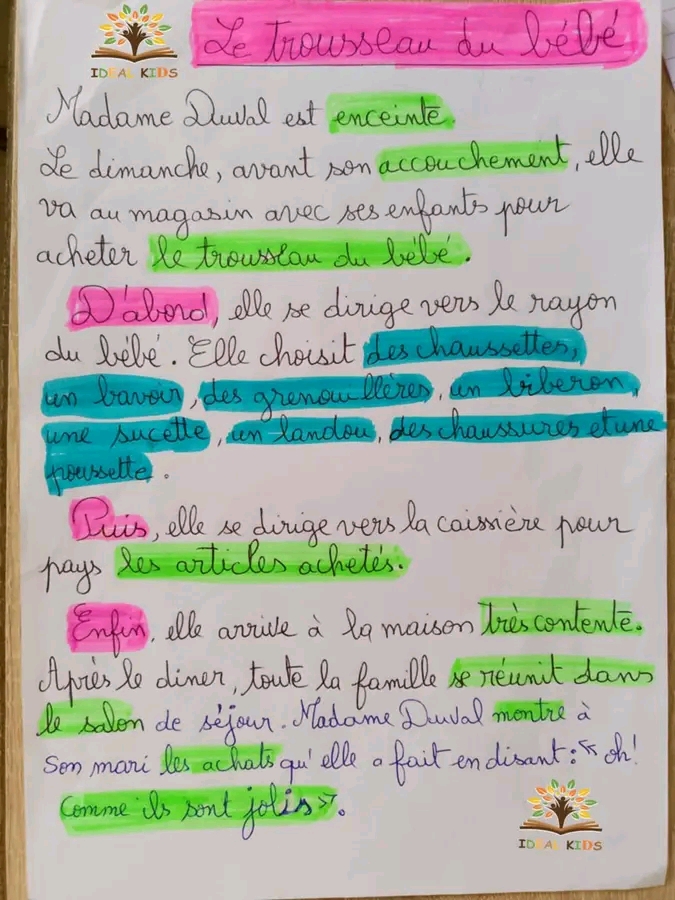 IDEAL KIDS
Le trousseau du bébé
Madame Duval est enceinte.
Le dimanche, avant son accouchement, elle
va au magasin avec ses enfants pour
acheter le trousseau du bébé.
D'abord, elle se dirige vers le rayon
du bébé. Elle choisit des chaussettes,
un bavoir, des grenouillères, un biberon,
une sucette, un landou, des chaussures et une
poussette.
Puis, elle se dirige vers la caissière pour
pays les articles achetés.
Enfin, elle arrive à la maison très contente.
Après le diner, toute la famille se réunit dans
le salon de séjour. Madame Duval montre à
Son mari les achats qu'elle a fait en disant : « oh!
Comme ils sont jolis ».
IDEAL KIDS